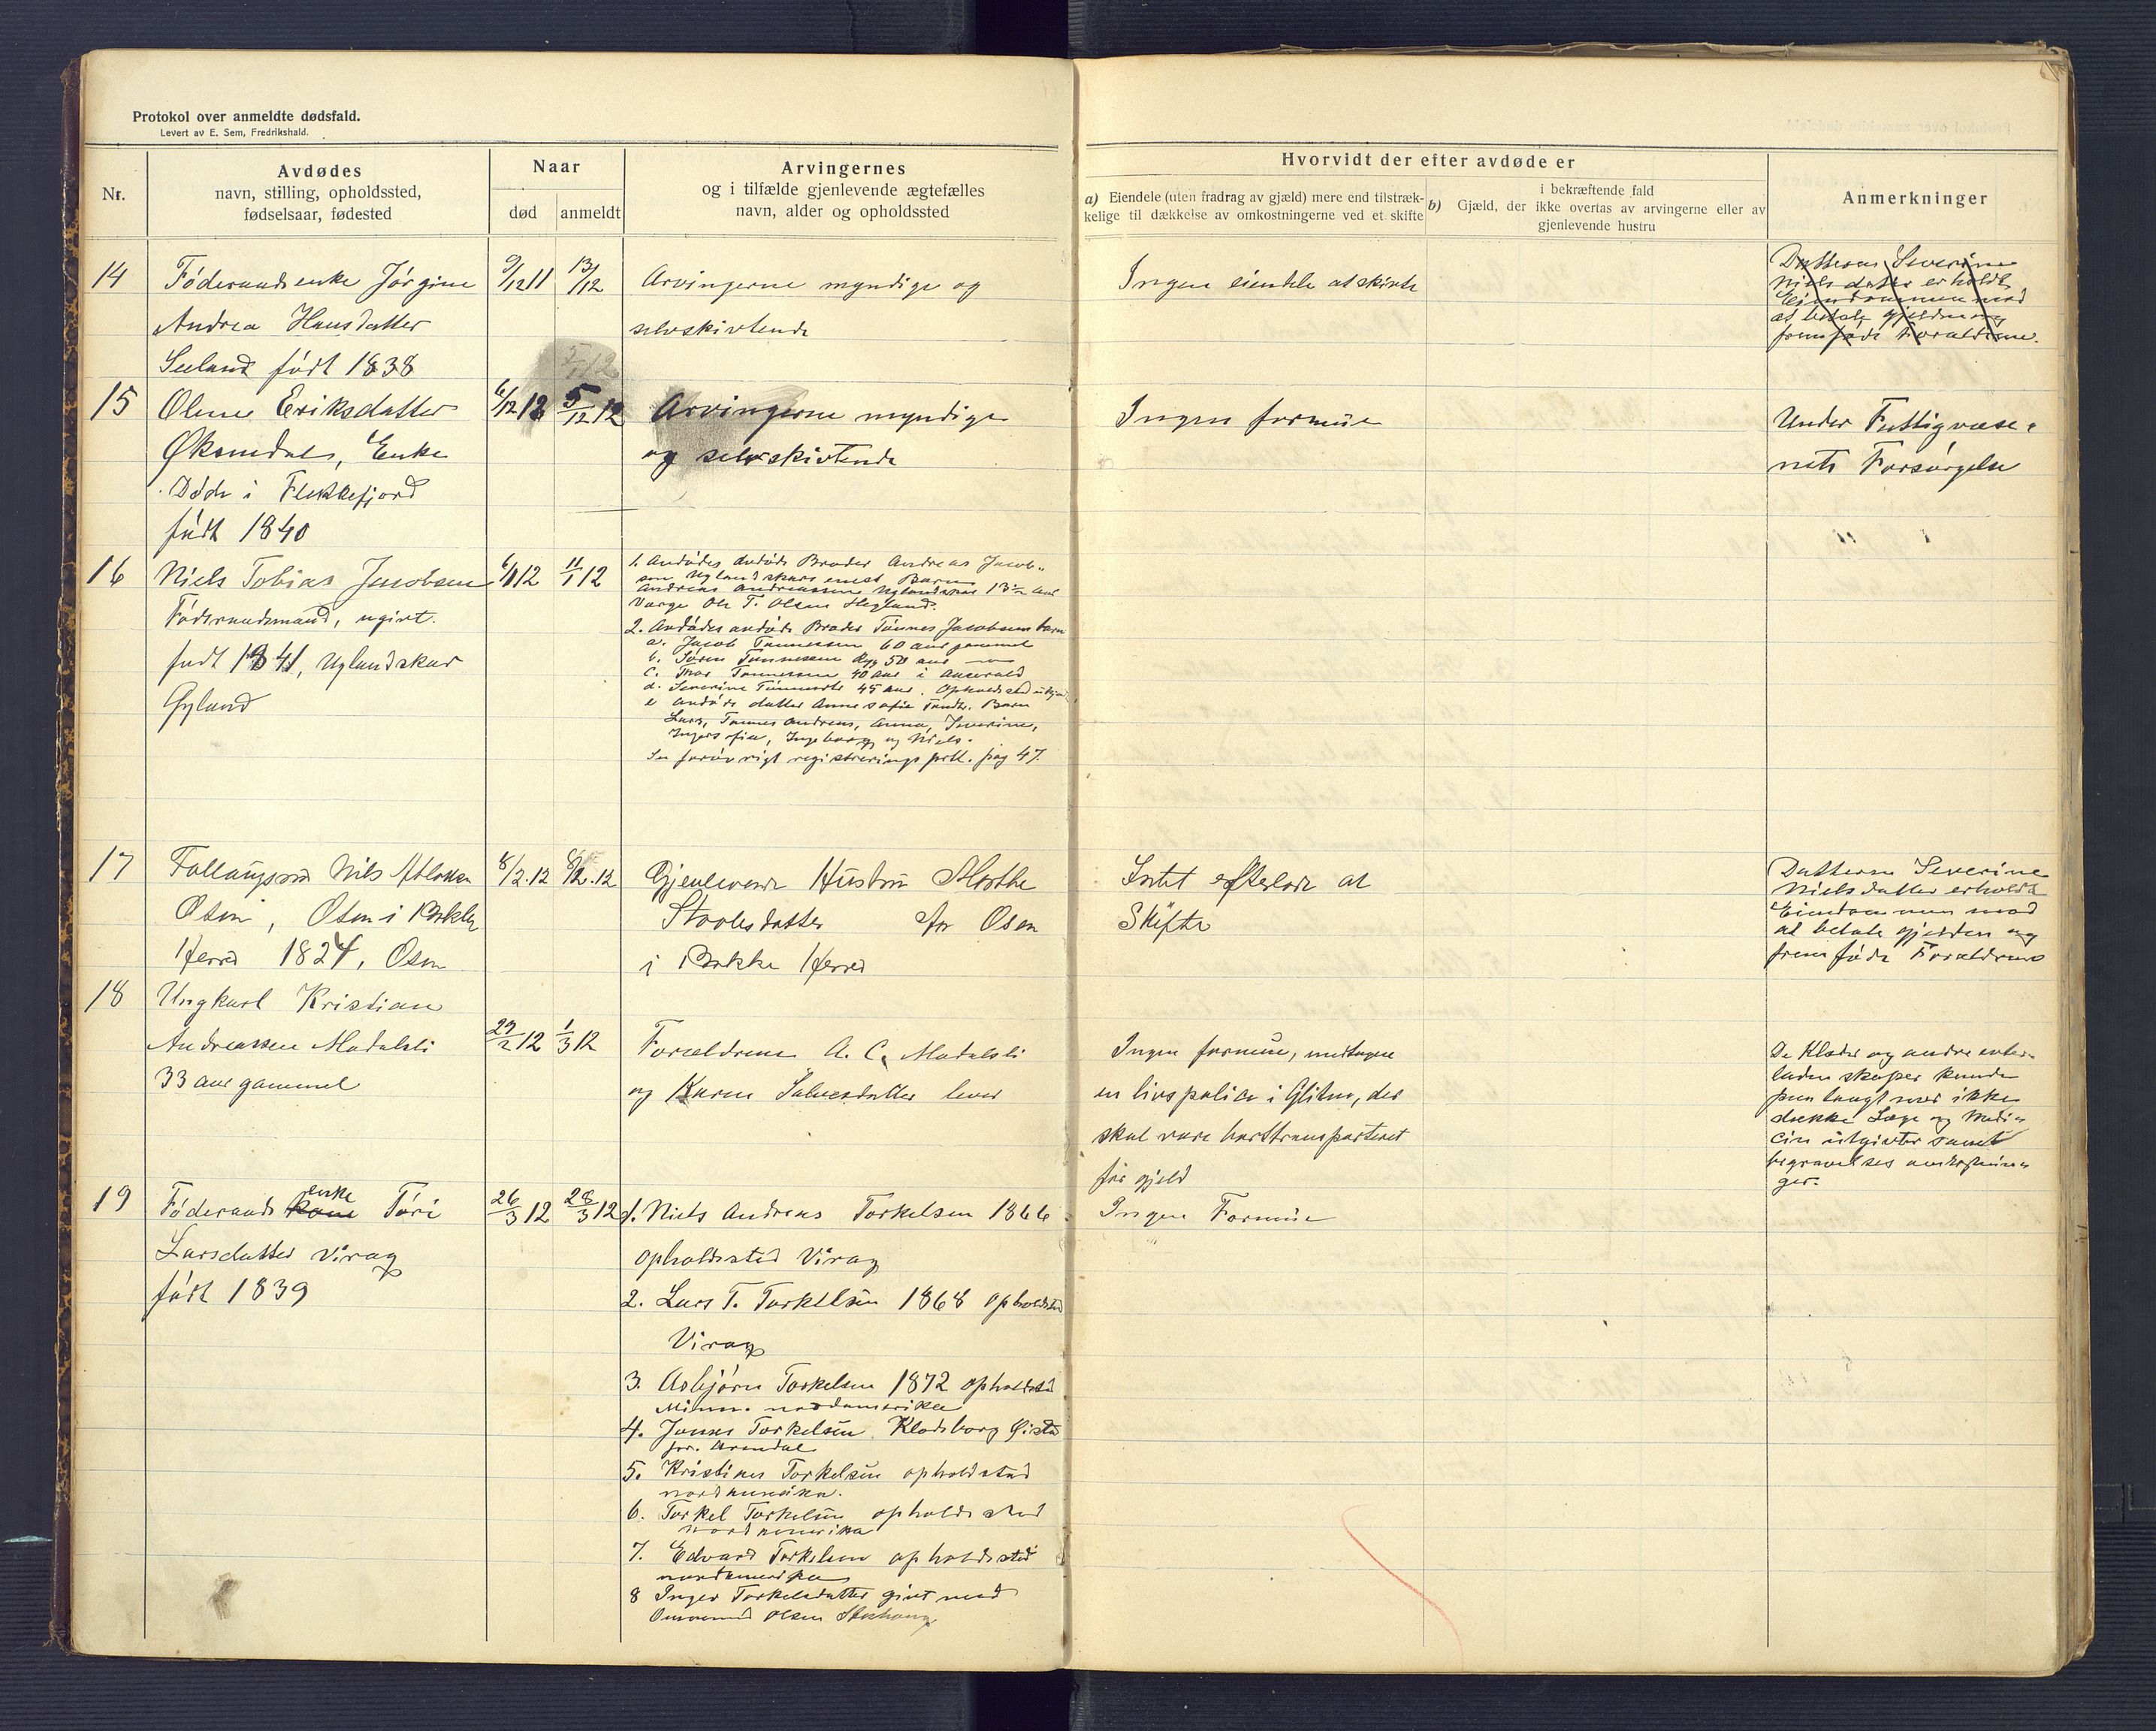 Protokol over anmeldte dødsfald.
Levert av E. Sem, Fredrikshald.
Nr.
Avdødes
navn, stilling, opholdssted,
fødselsaar, fødested
Naar
død
anmeldt
Arvingernes
og i tilfælde gjenlevende ægtefælles
navn, alder og opholdssted
Hvorvidt der efter avdøde er
a) Eiendele (uten fradrag av gjæld) mere end tilstræk-
kelige til dækkelse av omkostningerne ved et skifte
i bekræftende fald
b) Gjæld, der ikke overtas av arvingerne eller av
gjenlevende hustru
Anmerkninger
14
Føderaadsenke Jørgine
Andrea Hansdatter
Seland født 1838
9/12 11
13/12
Arvingerne myndige og
selvskivtende
Ingen eiendele at skivte
Datteren Severine
Nielsdatter erholdt
Eiendommen mod
at betale gjelden og
fremføde Foraldrene.
15
Oline Eriksdatter
Øksendal, Enke
Døde i Flekkefjord
født 1840
6/12 12
5/12 12
Arvingerne myndige
og selvskivtende
Ingen formue
Under Fattigvæse-
nets Forsørgelse
16
Niels Tobias Jacobsen
Føderaadsmand, ugivt.
født 1841, Uglandskar
Gyland
6/1 12
11/1 12
1. Avdødes avdøde Broder Andreas Jacob-
sen Uglandskars enest Barn
Andreas Andreassen Uglandskar 13 1/2 aar
Værge Ole T. Olsen Hegland.
2. Avdødes avdøde Broder Tønnes Jacobsens barn
a. Jacob Tønnessen 60 aar gammel
b. Søren Tønnessen Ryg 50 aar
c. Thor Tønnessen 40 aar i
d. Severine Tønnesdtr 45 aar. Opholdssted
e avdøde datter Anne Sofie Tønsdtr. Barn
Lars, Tønnes Andreas, Anna, Severine,
Inger Sofie, Ingeborg og Niels.
Se forøvrigt registrerings protl. pag 47.
17
Føllaugsmd Nils Atlaksen
Osen, Osen i Bakke
Herred 1824, Osen
8/2.12
8/2.12
Gjenlevende Hustru Marthe
Staalesdatter for Osen
i Bakke Herred
Intet efterlade at
Skifte
Datteren Severine
Nielsdatter erholdt
Eiendommen mod
at betale gjelden og
fremføde Foraldrene
18
Ungkarl Kristian
Andreassen Modalsli
33 aar gammel
29/2 12
1/3 12
Forældrene A. C. Modalsli
og Karen Salvesdatter lever
Ingen formue, undtagen
en livspolice i Glitne, der
skal være borttransporteret
for gjeld
De Klæder og andre efter-
ladenskaper kunde
paa langt nær ikke
dække Læge og Medi-
cin utgivter samt
begravelses omkostnin-
ger.
19
Føderaads kone enke Tøri
Larsdatter Virag
født 1839
26/3 12
28/3 12
1. Niels Andreas Torkelsen 1866
opholdssted Virag
2. Lars T. Torkelsen 1868 opholdssted
Virag
3. Asbjørn Torkelsen 1872 opholdssted
Minn. nordamerika
4. Jonas Torkelsen Klodeborg Øiestad
pr. Arendal
5. Kristines Torkelsen opholdssted
nordamerika.
6. Torkel Torkelsen opholdssted
nordamerika
7. Edvard Torkelsen opholdssted
nordamerika
8 Inger Torkelsdatter givt med
Omund Olsen
Ingen Formue